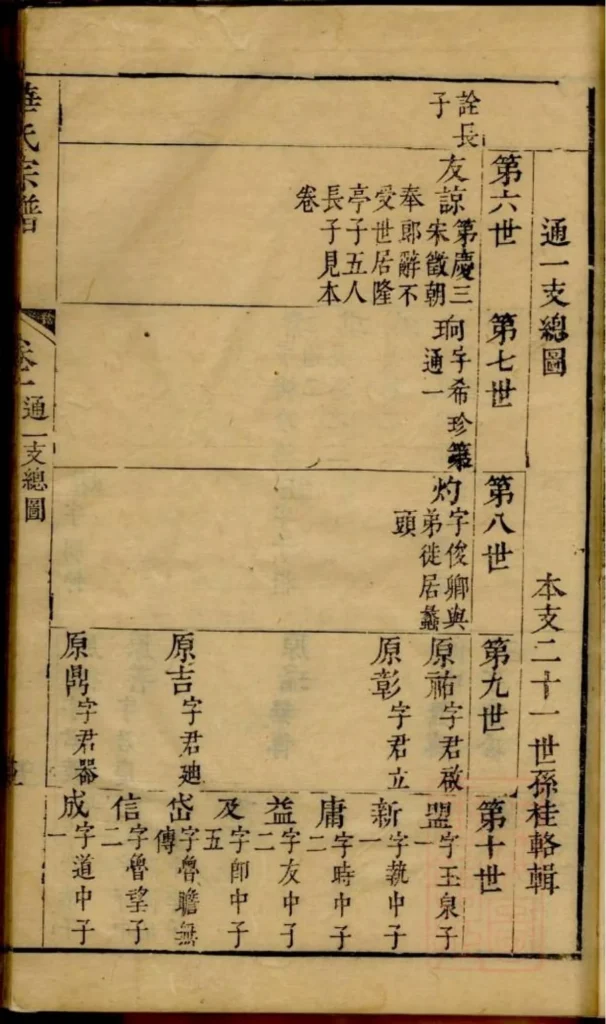 通一支總圖
本支二十一世孫桂輅輯
第六世
第七世
第八世
第九世
第十世
詮長
子
友諒
第慶三
宋徵朝
奉郎辭不
受世居隆
亭子五人
長子見本
卷
珦
字希珍第
通一
灼
字俊卿與
弟徙居蠡
頭
原祐
字君啟
原彰
字君立
原吉
字君廸
原鼎
字君器
盟
字玉泉子
一
新
字執中子
一
庸
字時中子
二
益
字友中子
二
及
字卽中子
五
岱
字魯瞻無
傳
信
字魯望子
二
成
字道中子
一
華氏宗譜
卷一
通一支總圖